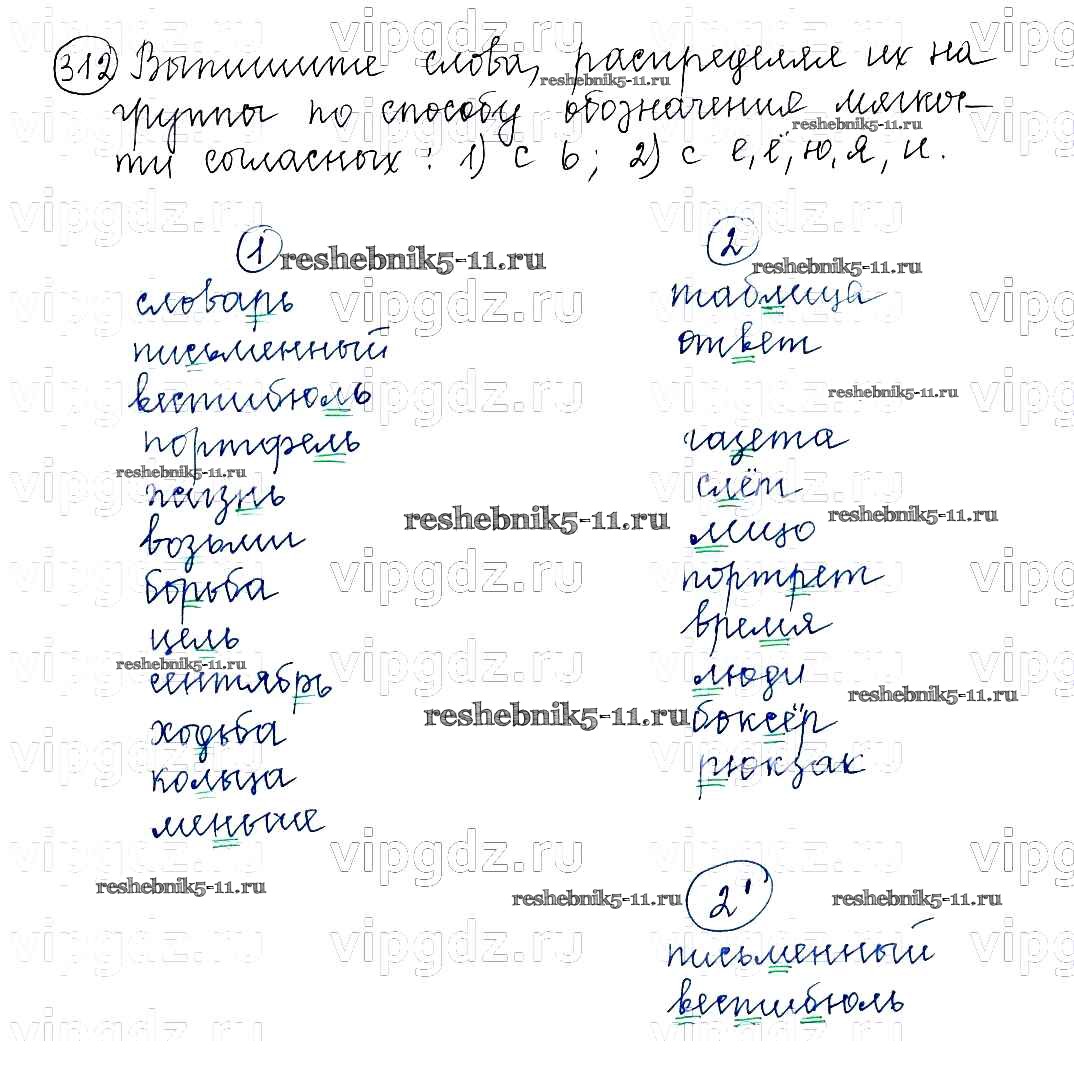 312 Выпишите слова, распределяя их на
группы по способу обозначения мягкос-
ти согласных: 1) с ь; 2) с е, ё, ю, я, и.
1
словарь
письменный
вестибюль
портфель
жизнь
возьми
борьба
цель
сентябрь
ходьба
кольца
меньше
2
таблица
ответ
газета
слёт
лицо
портрет
время
люди
боксёр
рюкзак
2'
письменный
вестибюль
vipgdz.ru
reshebnik5-11.ru